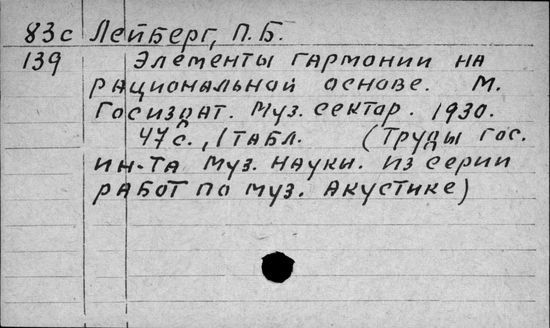 83с Лейберг, П.Б.
139 Элементы гармонии на
рациональной основе. М.
Госиздат. Муз. сектор. 1930.
47 с., 1 табл. (Труды гос.
ин-та муз. науки. Из серии
работ по муз. акустике)